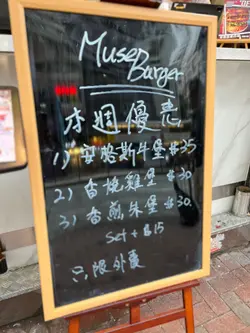 Muse
Burger
本週優惠
1) 安格斯牛堡 $35
2) 香燒雞堡 $30
3) 香煎朱堡 $30
Set + $15
只限外賣